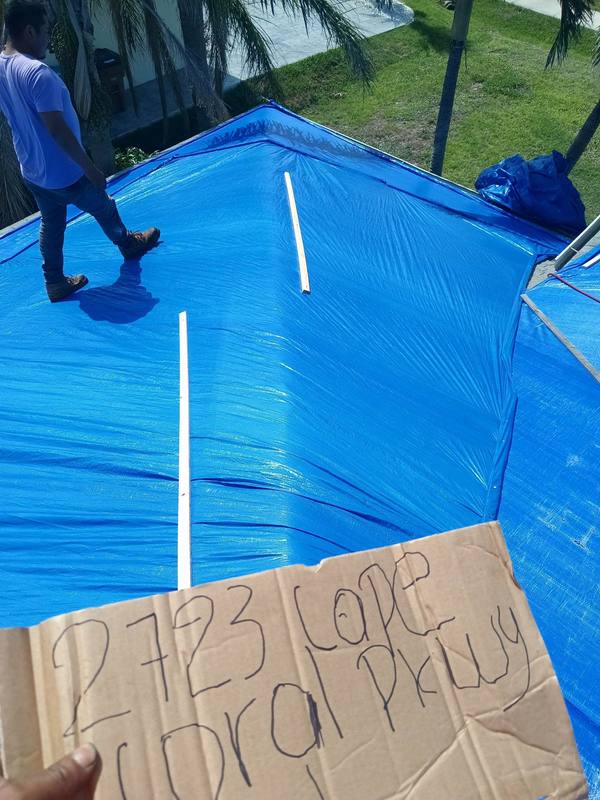 2723 Cape
Coral Pkwy